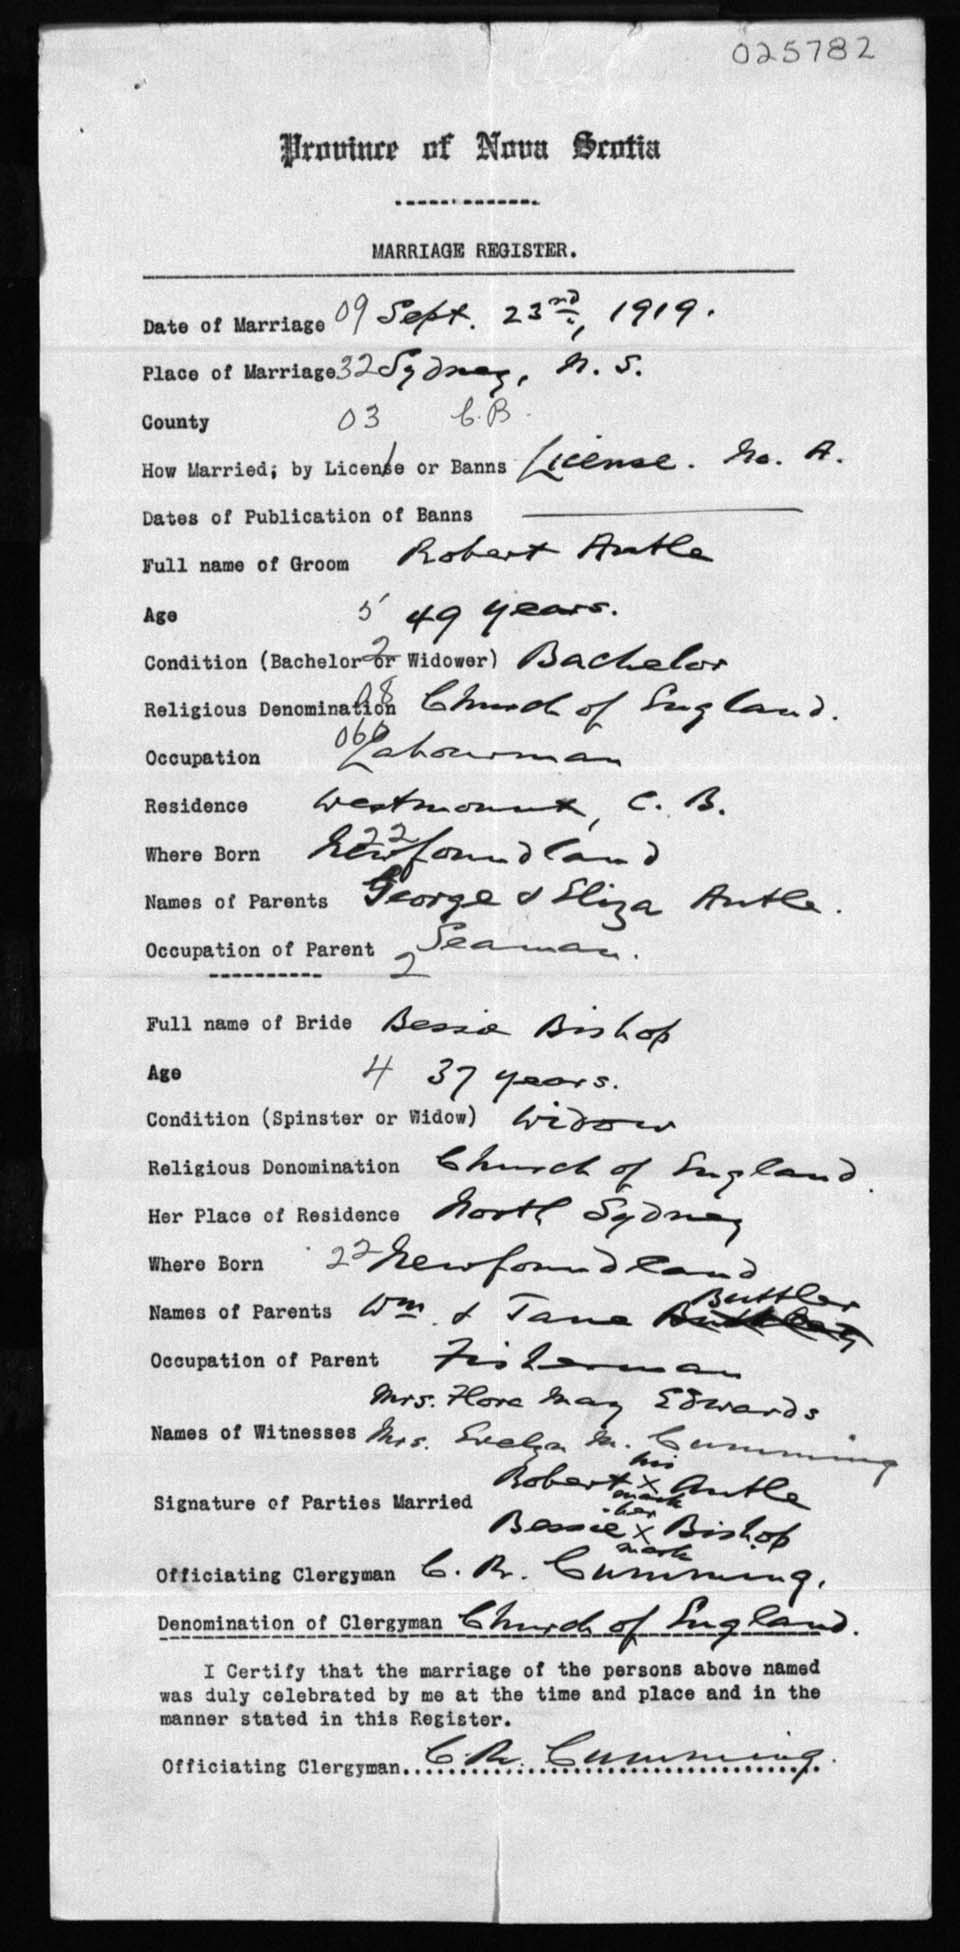 025782
Province of Nova Scotia
MARRIAGE REGISTER.
Date of Marriage 09 Sept. 23nd, 1919.
Place of Marriage 32 Sydney, N. S.
County 03 C.B.
How Married; by License or Banns License. No. A.
Dates of Publication of Banns
Full name of Groom Robert Antle
Age 5 49 years.
Condition (Bachelor or Widower) 2 Bachelor
Religious Denomination 08 Church of England.
Occupation 060 Labourman
Residence Westmount, C. B.
Where Born 22 Newfoundland
Names of Parents George & Eliza Antle.
Occupation of Parent 2 Seaman.
Full name of Bride Bessie Bishop
Age 4 37 years.
Condition (Spinster or Widow) Widow
Religious Denomination Church of England.
Her Place of Residence North Sydney
Where Born 22 Newfoundland
Buttler
Names of Parents Wm. & Jane
Occupation of Parent Fisherman
Mrs. Flora May Edwards
Names of Witnesses Mrs. Evelyn M. Cumming
his
Signature of Parties Married Robert X Antle
mark
her
Bessie X Bishop
mark
Officiating Clergyman C. R. Cumming,
Denomination of Clergyman Church of England.
I Certify that the marriage of the persons above named
was duly celebrated by me at the time and place and in the
manner stated in this Register.
Officiating Clergyman C. R. Cumming.